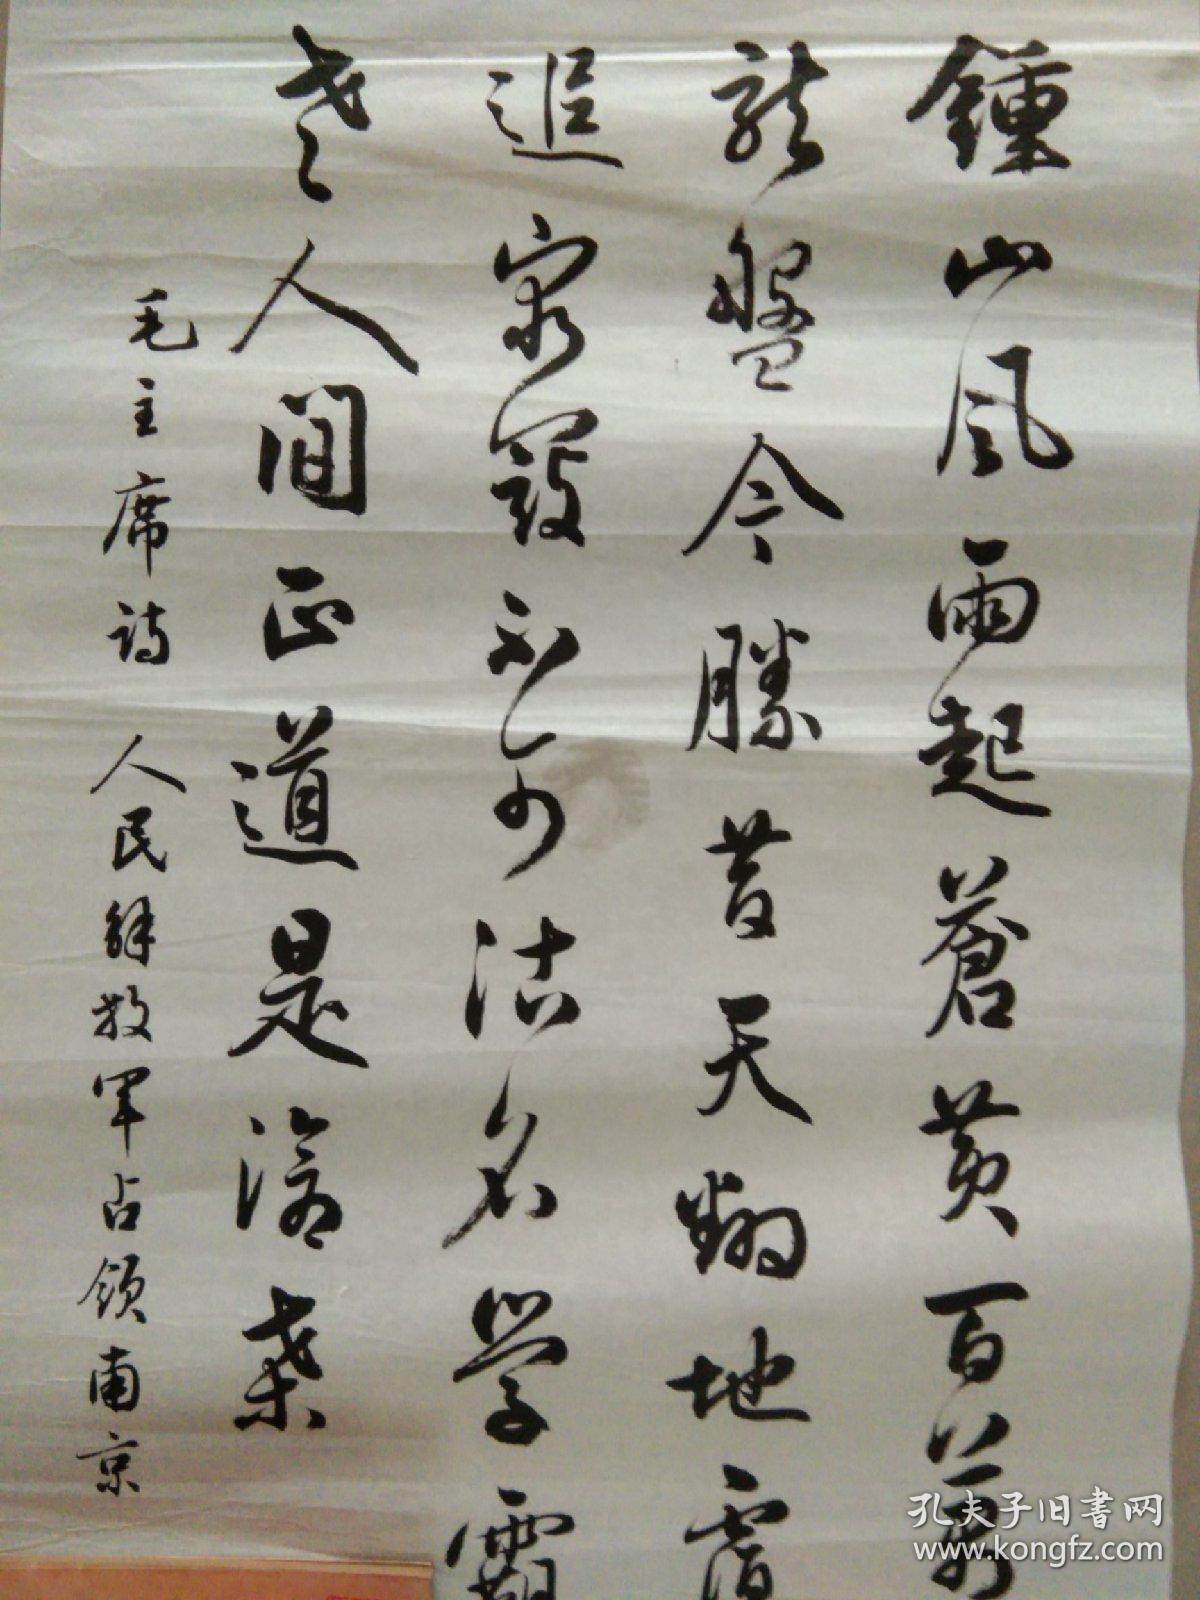 鍾山风雨起蒼黄百萬
龍盤今勝昔天翻地覆
追窮寇不可沽名学霸
老人间正道是滄桑
毛主席詩 人民解放軍占領南京
孔夫子旧书网
www.kongfz.com